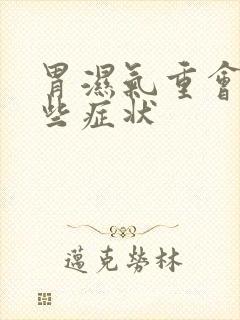 胃濕氣重會
些症狀
邁克勞林